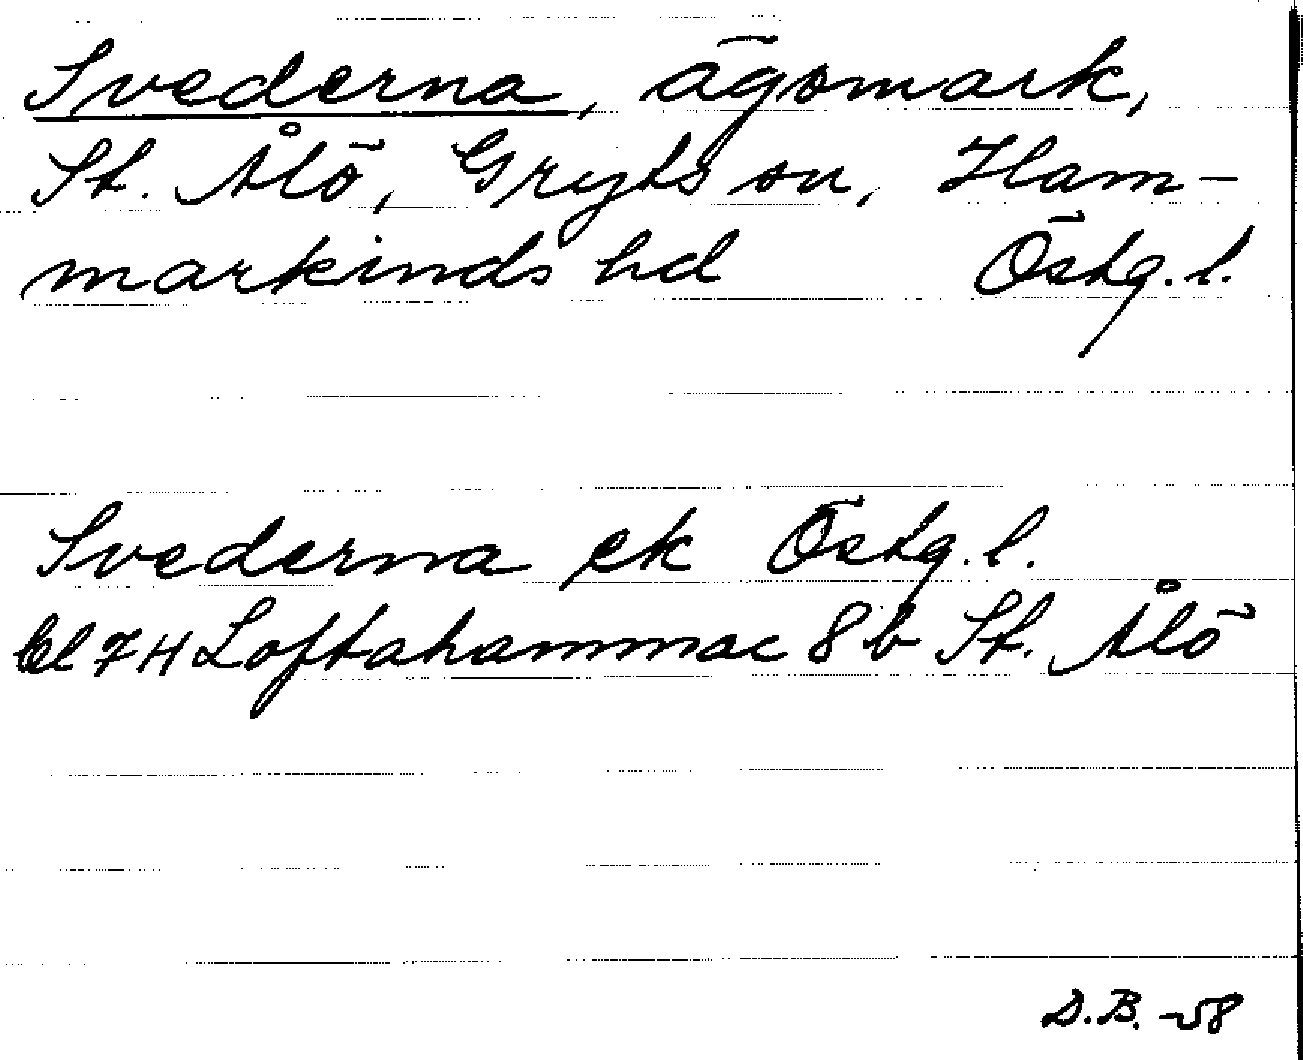 Svederna, ägomark,
St. Ålö, Gryts sn, Ham-
markinds hd Östg. l.
Svederna ek Östg. l.
bl 7H Loftahammar 8b St. Ålö
D.B. -58